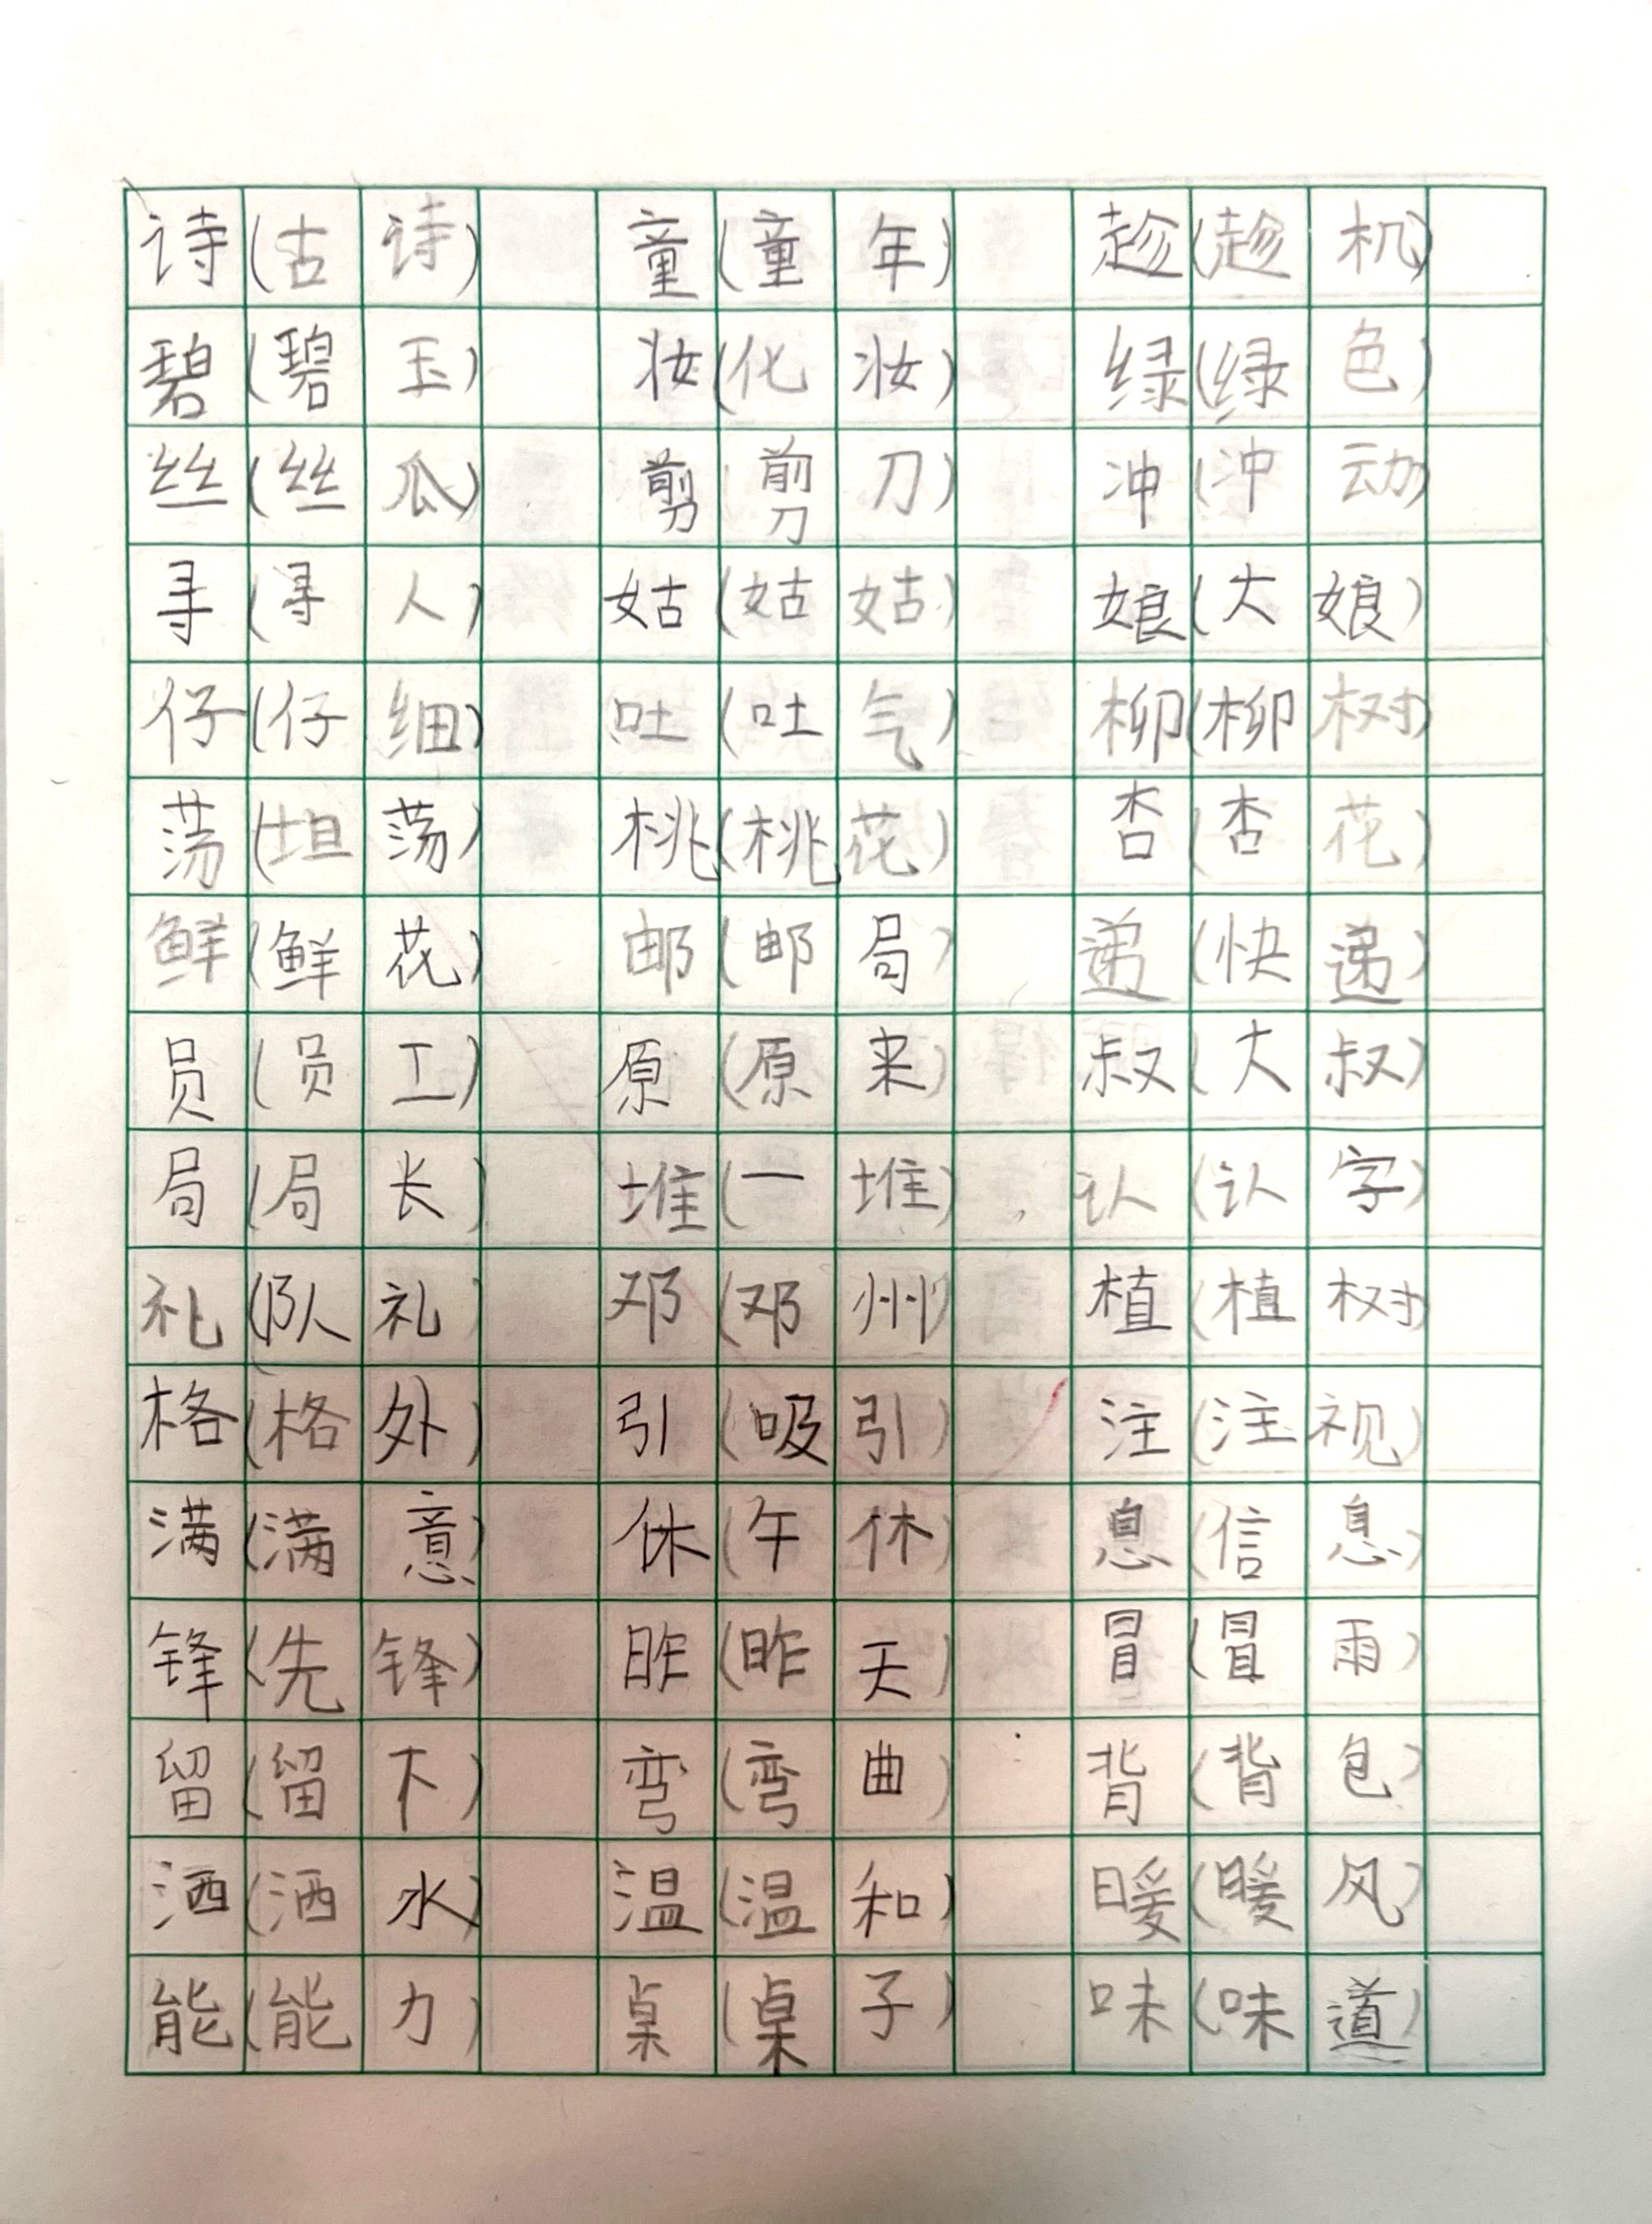 诗(古诗) 童(童年) 趁(趁机)
碧(碧玉) 妆(化妆) 绿(绿色)
丝(丝瓜) 剪(剪刀) 冲(冲动)
寻(寻人) 姑(姑姑) 娘(大娘)
仔(仔细) 吐(吐气) 柳(柳树)
荡(坦荡) 桃(桃花) 杏(杏花)
鲜(鲜花) 邮(邮局) 递(快递)
员(员工) 原(原来) 叔(大叔)
局(局长) 堆(一堆) 认(认字)
礼(队礼) 邓(邓州) 植(植树)
格(格外) 引(吸引) 注(注视)
满(满意) 休(午休) 息(信息)
锋(先锋) 昨(昨天) 冒(冒雨)
留(留下) 弯(弯曲) 背(背包)
洒(洒水) 温(温和) 暖(暖风)
能(能力) 桌(桌子) 味(味道)